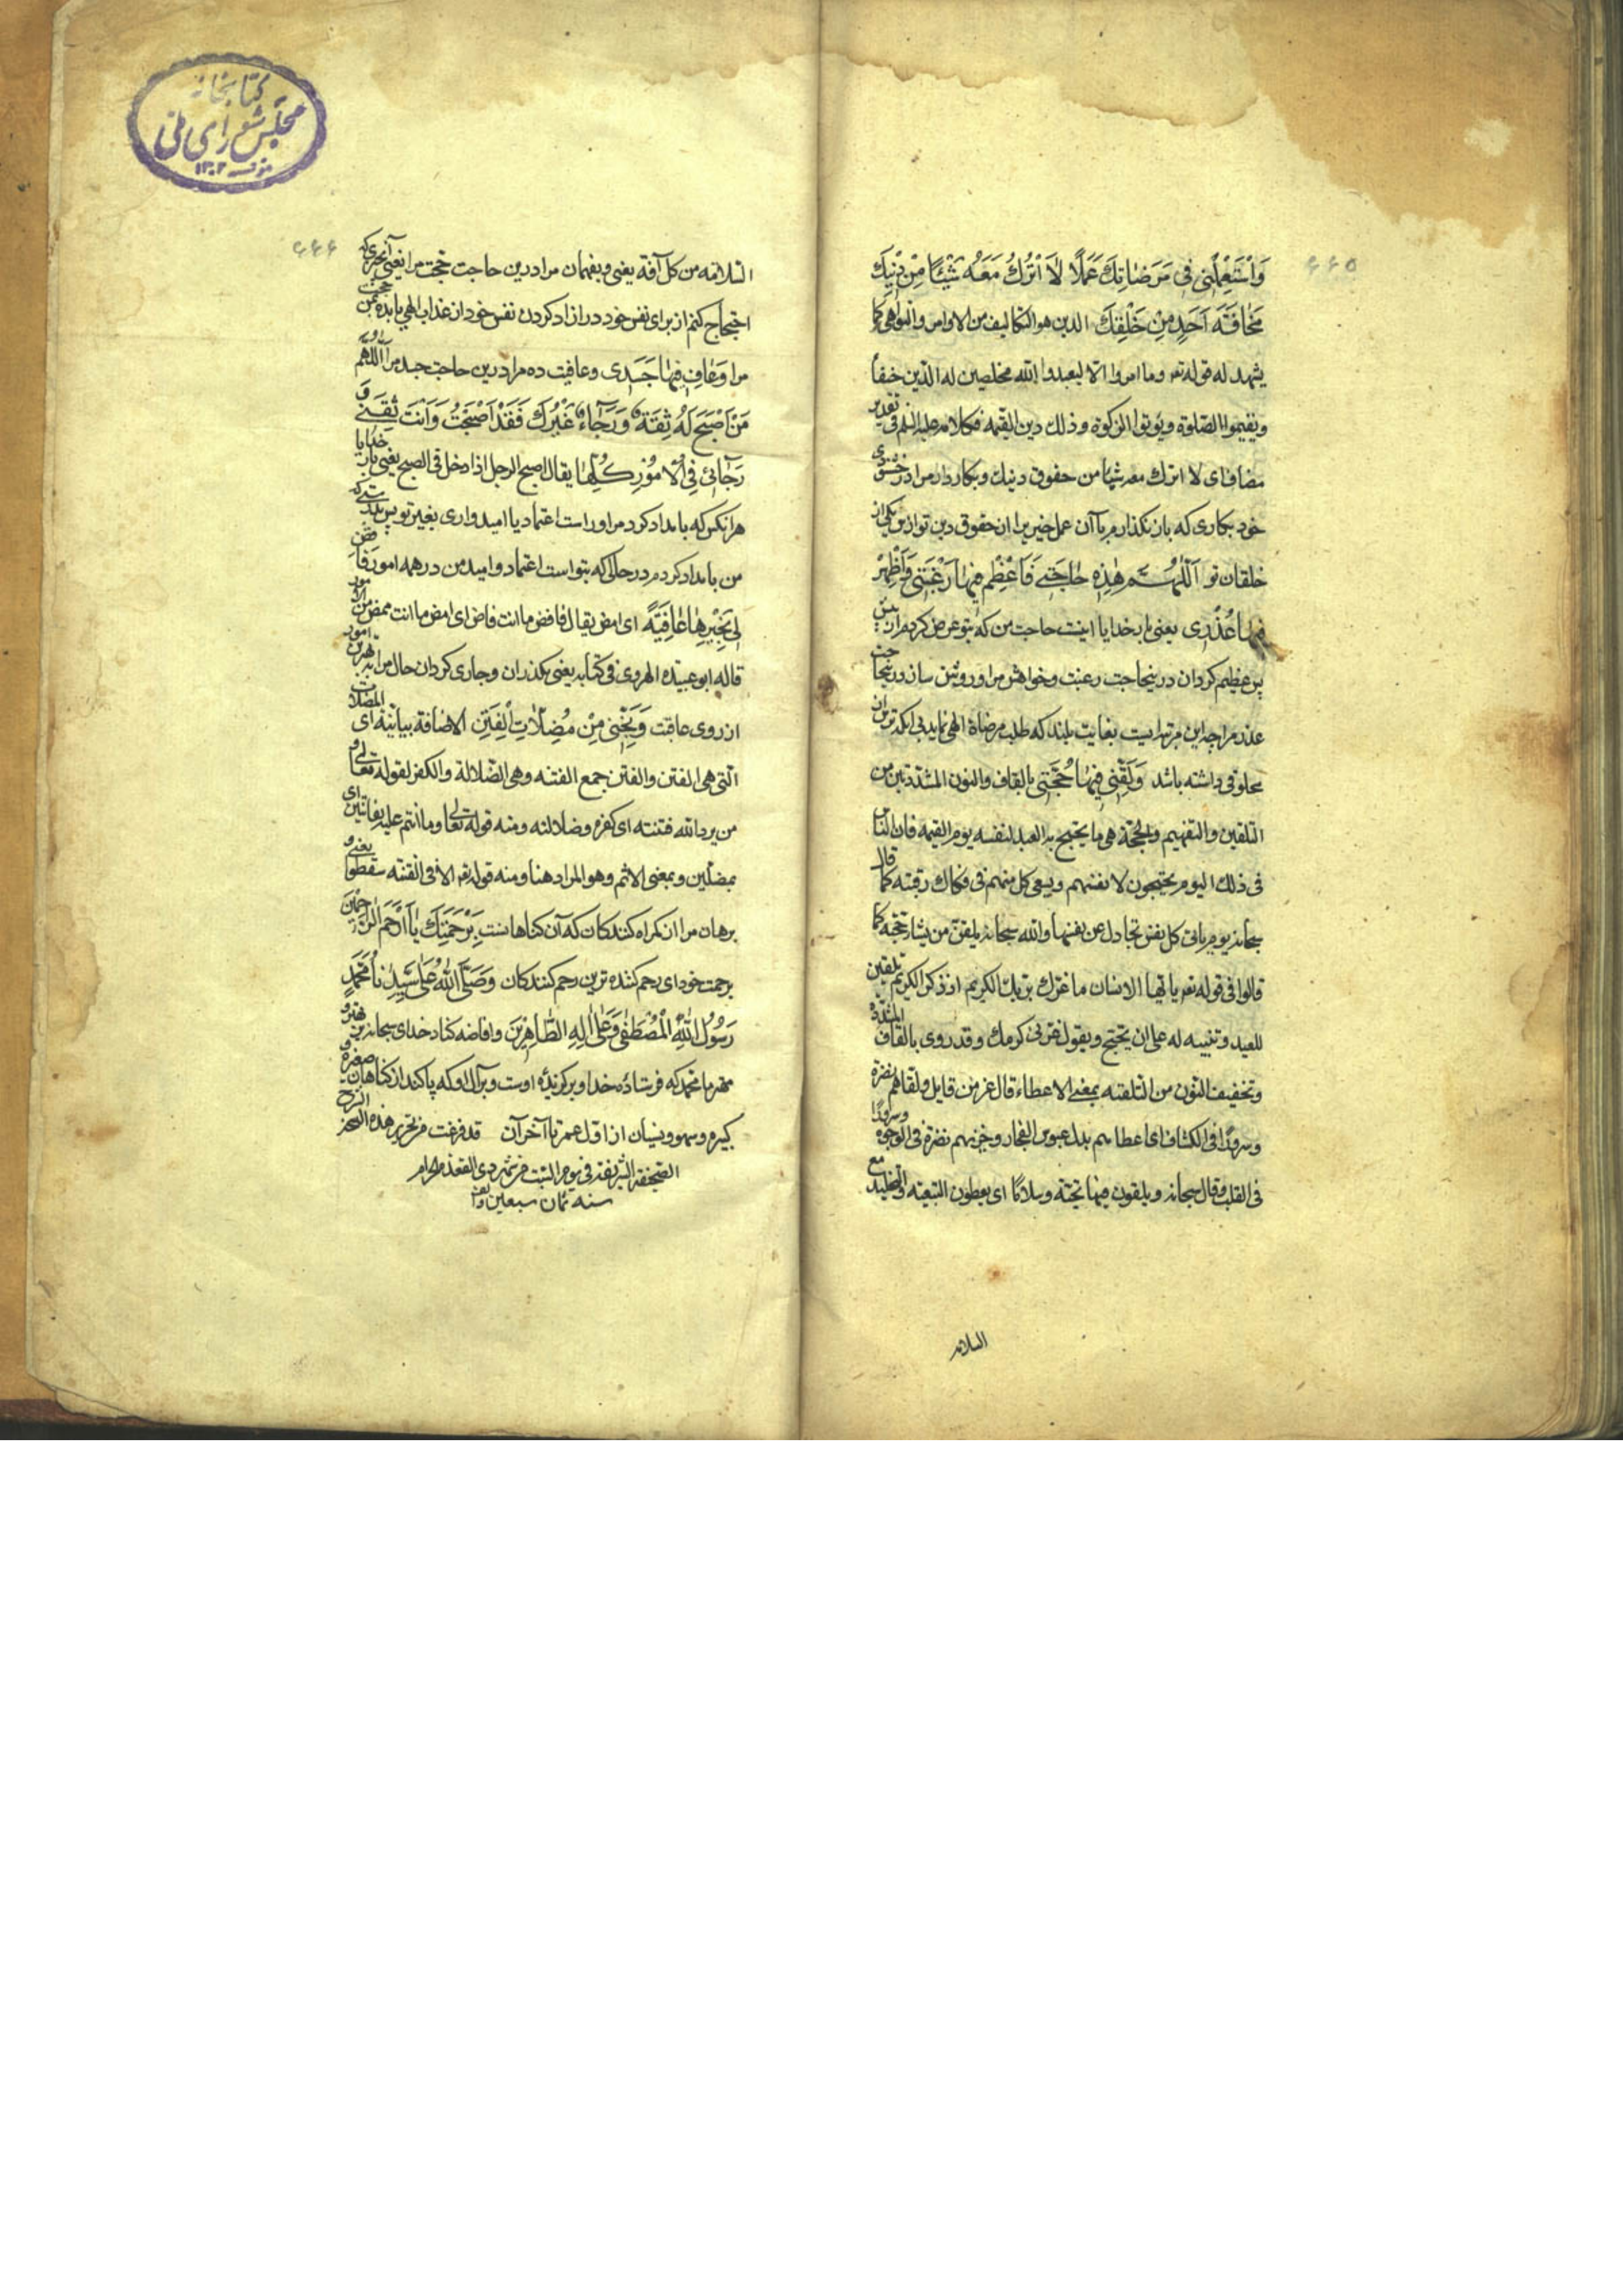 ۶۶۵
وَاسْتَعْمِلْنِي فِي مَرْضَاتِكَ عَمَلًا لَا أَتْرُكُ مَعَهُ شَيْئًا مِنْ دِينِكَ
مَخَافَةَ أَحَدٍ مِنْ خَلْقِكَ الدين هو التكاليف من الاوامر والنواهي كما
يشهد له قوله تعه وما امروا الا ليعبدوا الله مخلصين له الدين حنفاء
ويقيموا الصلوة ويؤتوا الزكوة وذلك دين القيمه فكلامه عليه السلم في تقدير
مضاف اى لا اترك معه شيئا من حقوق دينك وبكار دار مرا در خشنودى
خود بكارى كه باز نگذارم با آن عمل خيرى را از حقوق دين تو از ترس يكى از
خلقان تو اَللّٰهُمَّ هٰذِهِ حَاجَتِي فَأَعْظِمْ فِيهَا رَغْبَتِي وَأَظْهِرْ
فِيهَا عُذْرِي يعنى بار خدايا اينست حاجت من كه بتو عرض كردم
پس عظيم گردان درينحاجت رغبت وخواهش مرا وروشن ساز درينحاجت
عذر مرا چه اين مرتبه ايست بغايت بلند كه طلب مرضاة الهى نمايد بى آنكه ترس از
مخلوقى داشته باشد وَلَقِّنِّي فِيهَا حُجَّتِي بالقاف والنون المشددتين من
التلقين والتفهيم والحجة هى ما يحتج به العبد لنفسه يوم القيمه فان الناس
فى ذلك اليوم يحتجون لانفسهم ويسعى كل منهم فى فكاك رقبته كما قال
سبحانه يوم ياتى كل نفس تجادل عن نفسها والله سبحانه يلقن من يشاء حجته كما
قالوا فى قوله تعه يا ايها الانسان ما غرك بربك الكريم اذ ذكر الكريم تلقين
للعبد وتنبيه له على ان يحتج ويقول غرنى كرمك وقد روى بالقاف المشددة
وتخفيف النون من التلقيه بمعنى الاعطاء قال عز من قايل ولقاهم نضرة
وسرورًا فى الكشاف اى اعطاهم بدل عبوس الفجار وحزنهم نضرة فى الوجوه وسرورًا
فى القلب وقال سبحانه ويلقون فيها تحية وسلامًا اى يعطون التبقيه والتخليد مع
السلامه
كتابخانه
مجلس شوراى ملى
۱۳۰۲
۶۶۶
السلامه من كل آفة يعنى وبفهمان مرا درين حاجت حجت مرا يعنى آنچيزى كه
احتجاج كنم از براى نفس خود در آزاد كردن نفس خود از عذاب الهى يا بده بمن حجت
مرا وَعَافِ فِيهَا جَسَدِي وعافيت ده مرا درين حاجت جسد مرا اَللّٰهُمَّ
مَنْ أَصْبَحَ لَهُ ثِقَةٌ وَرَجَاءٌ غَيْرُكَ فَقَدْ أَصْبَحْتُ وَأَنْتَ ثِقَتِي وَ
رَجَائِي فِي الْأُمُورِ كُلِّهَا يقال اصبح الرجل اذا دخل فى الصبح يعنى بار خدايا
هر آنكس كه بامداد كرد مر اوراست اعتماد يا اميدوارى بغير تو پس بدرستى كه
من بامداد كردم در حالتى كه بتو است اعتماد واميد من در همه امور فَاقْضِ
لِي بِخَيْرِهَا عَاقِبَةً اى امض يقال فاقض ما انت قاض اى امض ما انت ممض من الامور
قاله ابو عبيده الهروى فى كتابه يعنى بگذران وجارى گردان حال مرا بهترين امور
از روى عاقبت وَنَجِّنِي مِنْ مُضِلَّاتِ الْفِتَنِ الاضافة بيانية اى المضلات
التى هى الفتن والفتن جمع الفتنه وهى الضلالة والكفر لقوله تعالى و
من يرد الله فتنته اى كفره وضلالته ومنه قوله تعالى وما انتم عليه بفاتنين اى
بمضلين وبمعنى الاثم وهو المراد هنا ومنه قوله تعه الا فى الفتنه سقطوا يعنى و
برهان مرا از گمراه كنندگان كه آن گناهانست بِرَحْمَتِكَ يَا أَرْحَمَ الرَّاحِمِينَ
برحمت خود اى رحم كننده ترين رحم كنندگان وَصَلَّى اللهُ عَلَى سَيِّدِنَا مُحَمَّدٍ
رَسُولِ اللهِ الْمُصْطَفَى وَعَلَى آلِهِ الطَّاهِرِينَ وافاضه كناد خداى سبحانه بر مهتر و
بهتر ما محمد كه فرستاده خدا وبرگزيده اوست وبر آل او كه پاكند از گناهان صغيره و
كبيره وسهو ونسيان از اول عمر تا آخر آن قد فرغت من تحرير هذه الشرح
الصحيفة الشريفة فى يوم السبت من شهر ذى القعدة الحرام
سنه ثمان سبعين والف